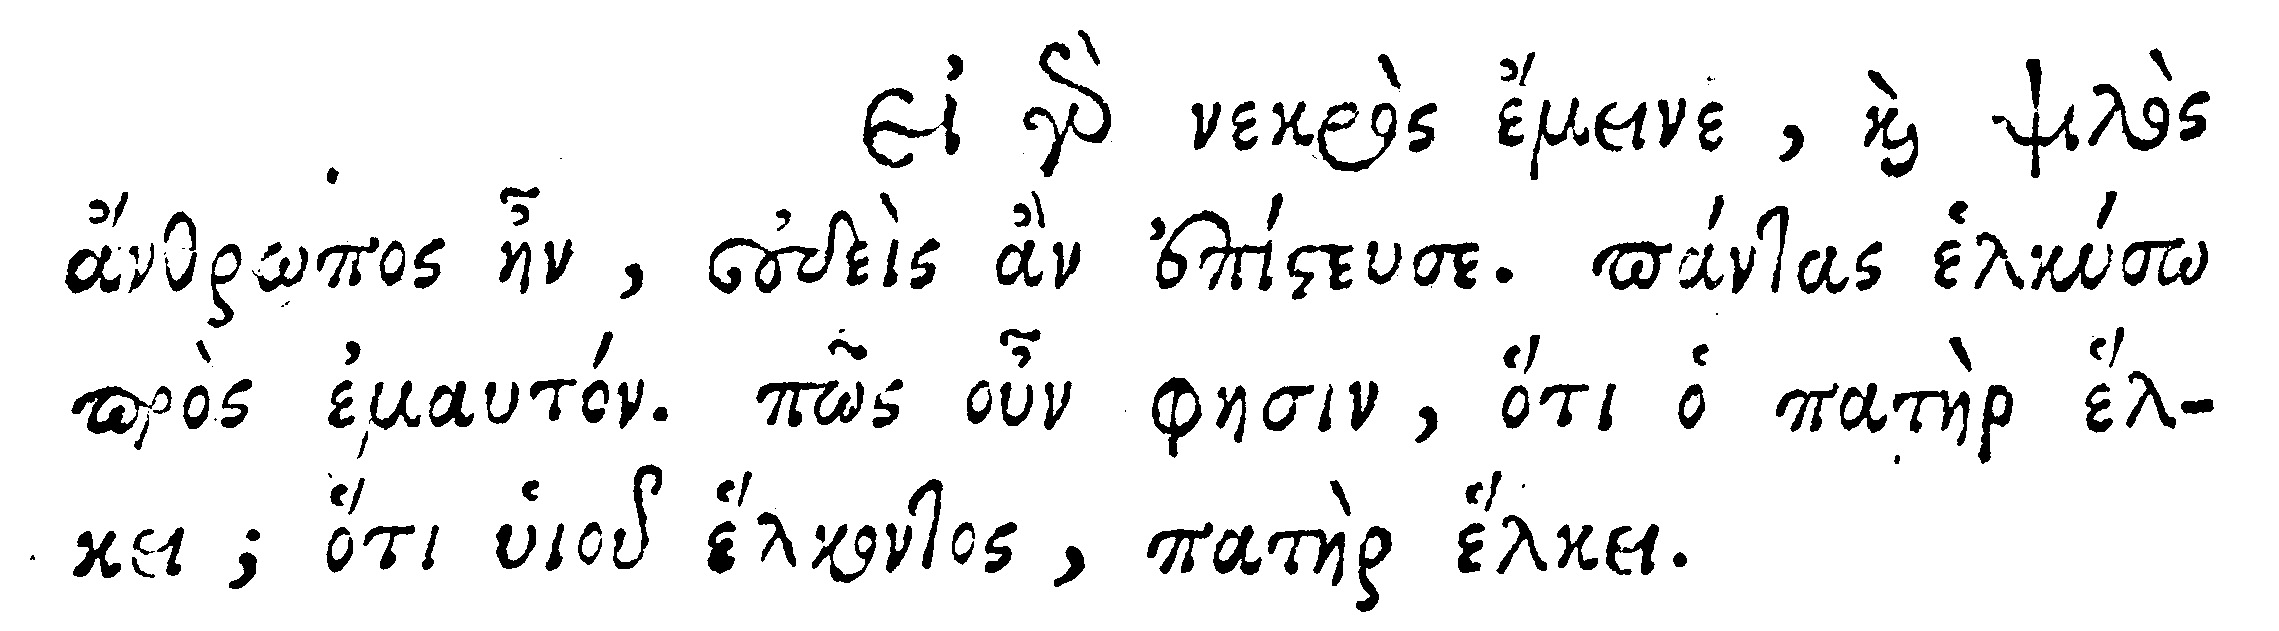 εἰ γὰρ νεκρὸς ἔμεινε, καὶ ψιλὸς
ἄνθρωπος ἦν, οὐδεὶς ἂν ἐπίστευσε. πάντας ἑλκύσω
πρὸς ἐμαυτόν. πῶς οὖν φησιν, ὅτι ὁ πατὴρ ἕλ-
κει; ὅτι υἱοῦ ἕλκοντος, πατὴρ ἕλκει.